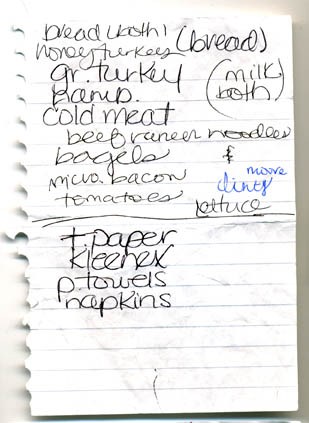 bread (both)
honey turkey (bread)
gr. turkey (milk both)
hamb.
cold meat
beef ramen noodles
bagels &
micro. bacon moore
tomatoes lettuce
t-paper
kleenex
p. towels
napkins